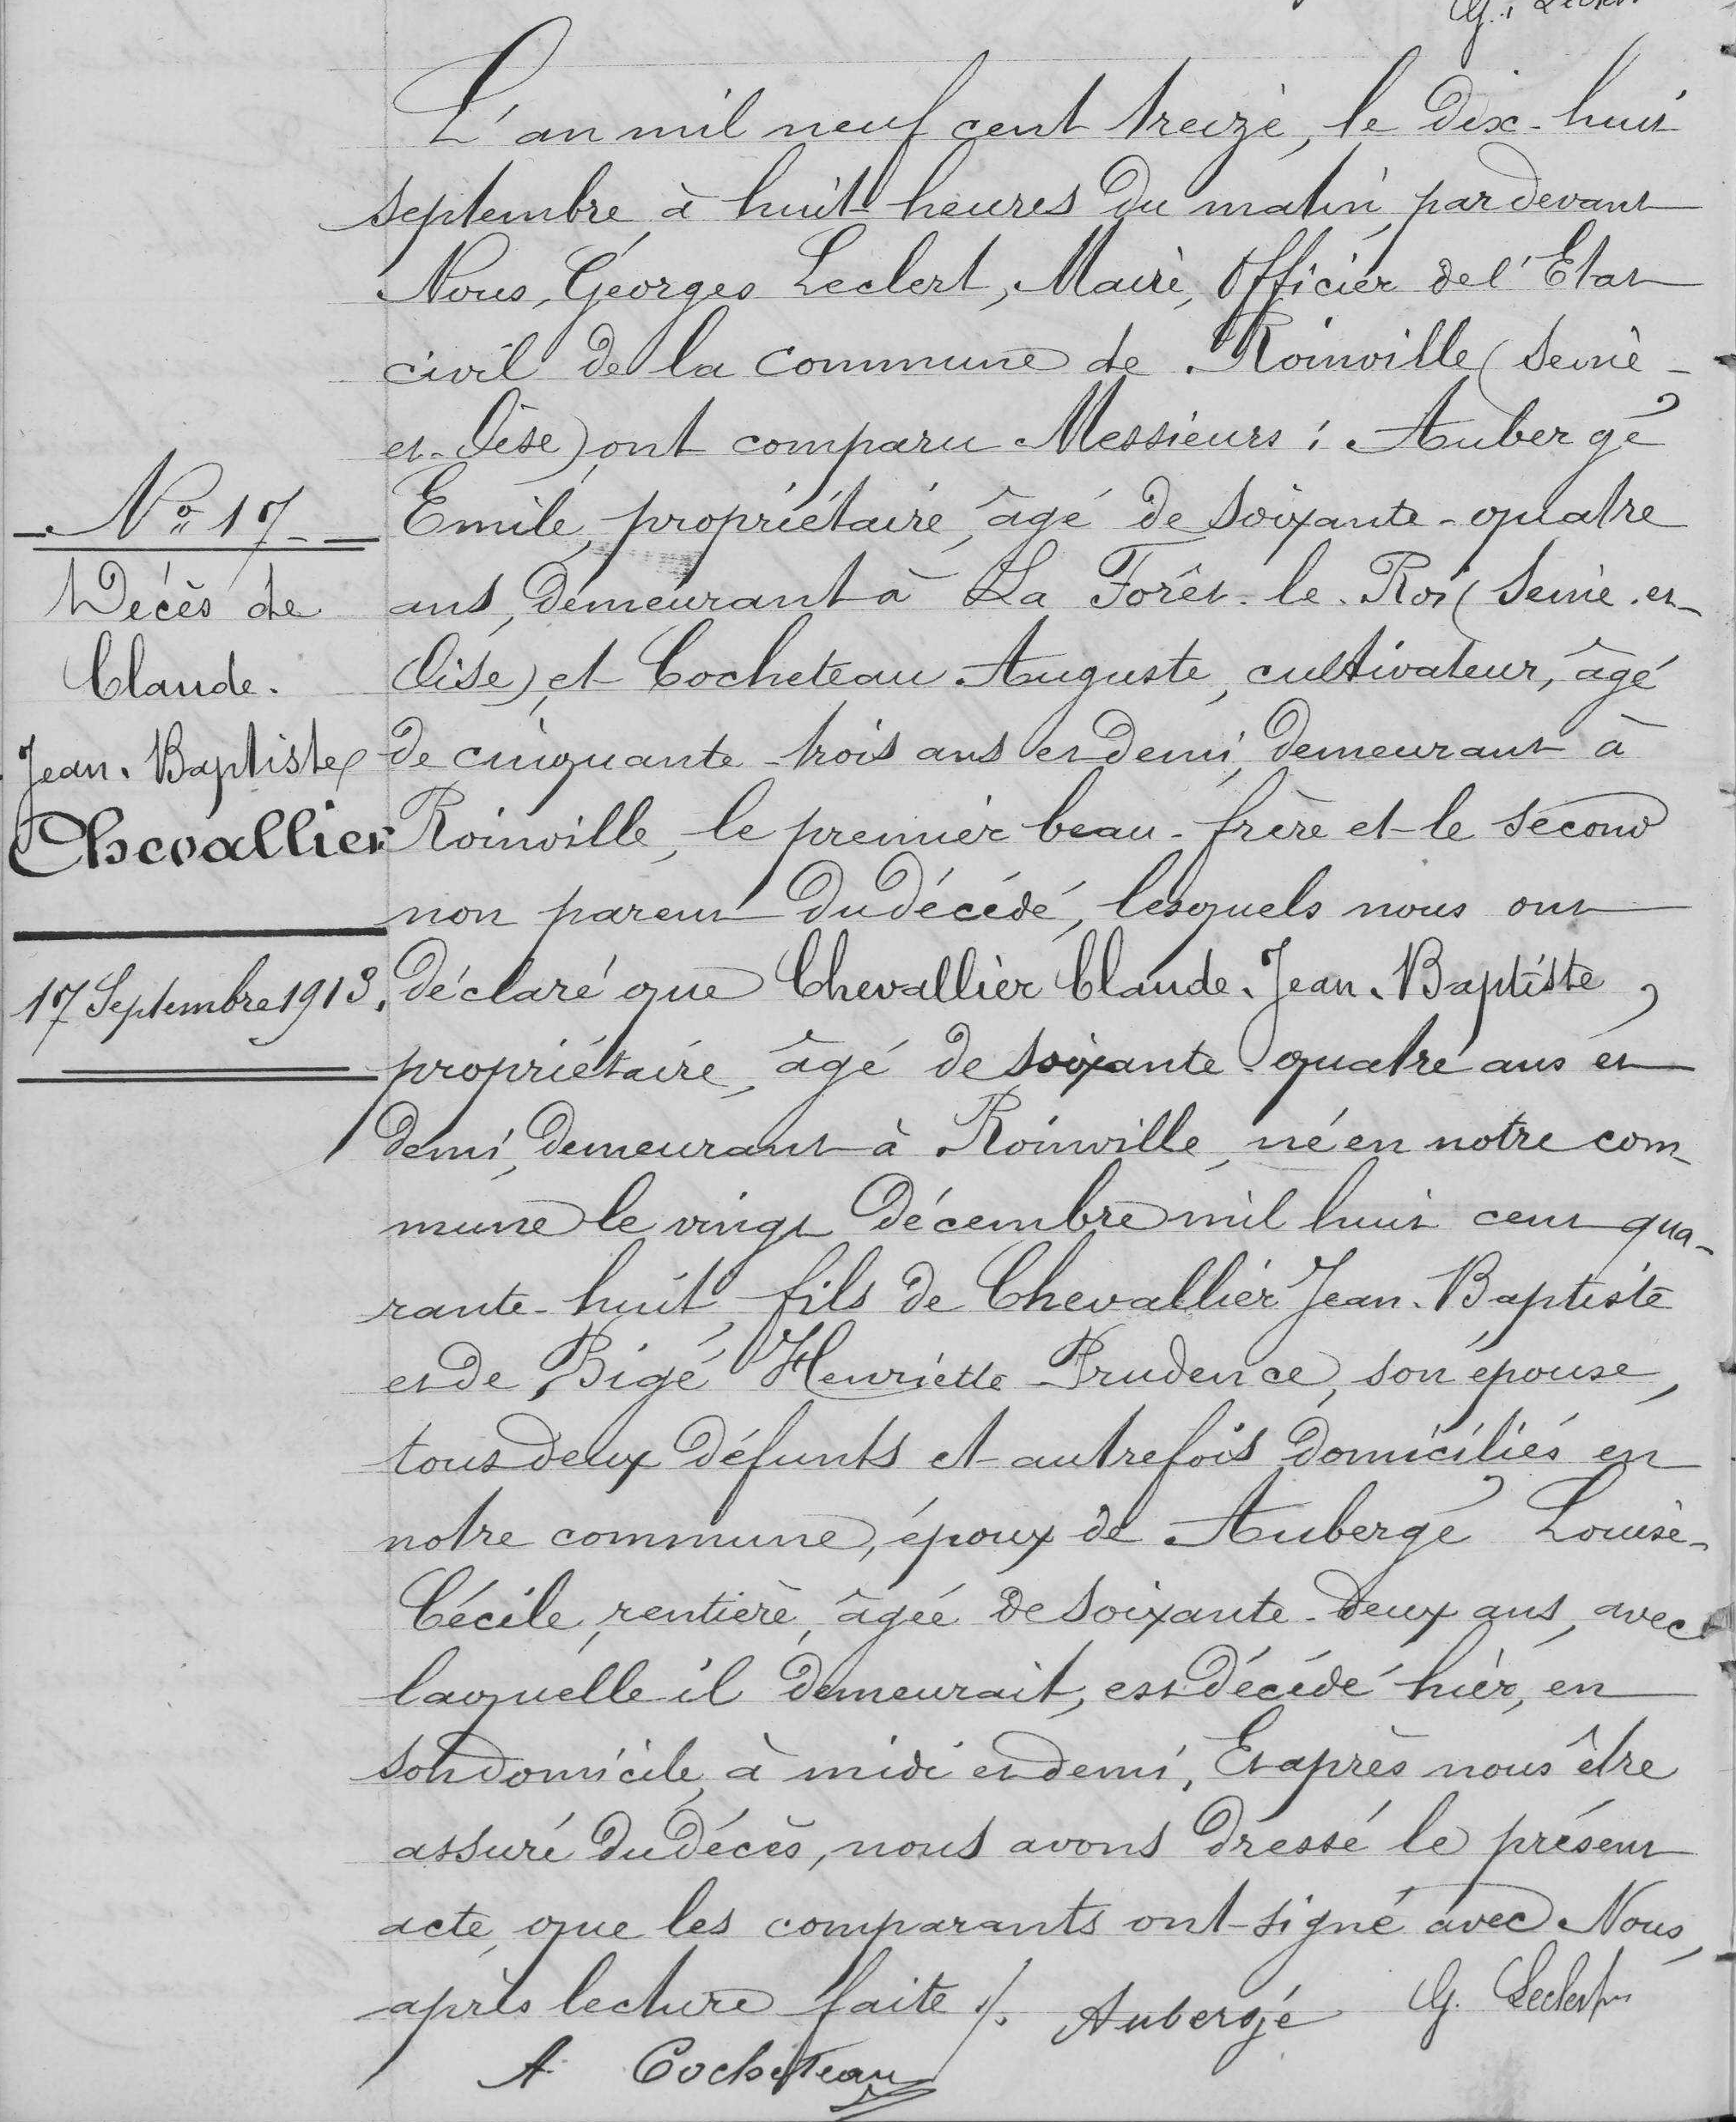 L'an mil neuf cent treize, le dix-huit
septembre, à huit heures du matin, par devant
Nous, Georges Leclert, Maire, Officier de l'Etat
civil de la commune de Roinville (Seine-
et-Oise) ont comparu Messieurs : Aubergé
Emile, propriétaire, âgé de soixante-quatre
ans, demeurant à La Forêt-le-Roi (Seine-et-
Oise), et Cocheteau Auguste, cultivateur, âgé
de cinquante-trois ans et demi, demeurant à
Roinville, le premier beau-frère et le second
non parent du décédé, lesquels nous ont
déclaré que Chevallier Claude-Jean-Baptiste,
propriétaire, âgé de soixante-quatre ans et
demi, demeurant à Roinville, né en notre com-
mune le vingt décembre mil huit cent qua-
rante-huit, fils de Chevallier Jean-Baptiste
et de Bigé Henriette Prudence, son épouse,
tous deux défunts et autrefois domiciliés en
notre commune, époux de Aubergé Louise-
Cécile, rentière, âgée de soixante-deux ans, avec
laquelle il demeurait, est décédé hier, en
son domicile, à midi et demi. Et après nous être
assuré du décès, nous avons dressé le présent
acte, que les comparants ont signé avec Nous,
après lecture faite ./. Aubergé G. Leclert
A Cocheteau
No 17
Décès de
Claude-
Jean-Baptiste
Chevallier
17 Septembre 1913.